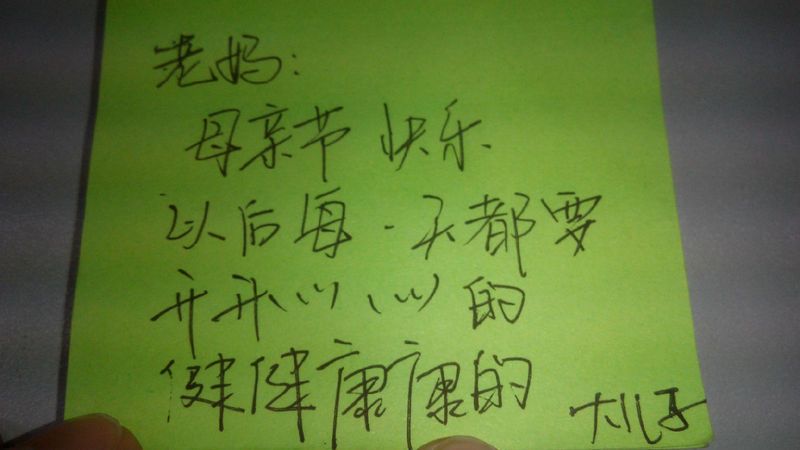 老妈：
母亲节快乐
以后每一天都要
开开心心的
健健康康的
大儿子